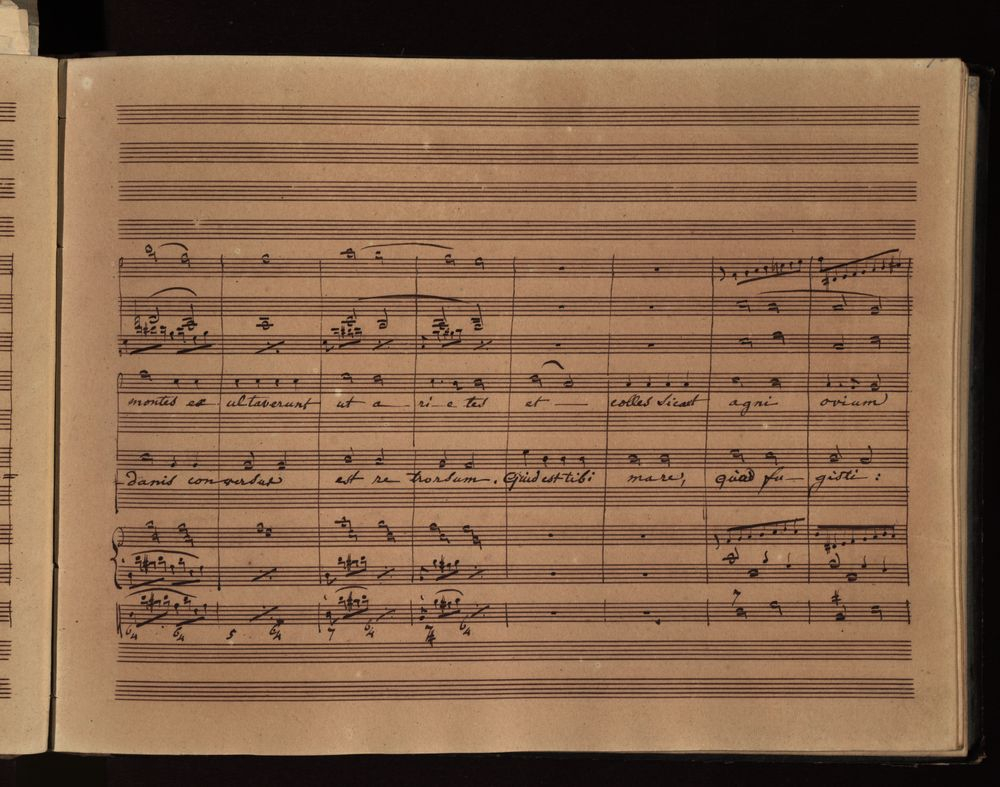 montes ex ultaverunt ut a ri e tes et colles sicut agni ovium
danis conversus est re trorsum. Quid est tibi mare, quod fu gisti:
6/4 6/4 5 6/4 7 6/4 7 6/4 7